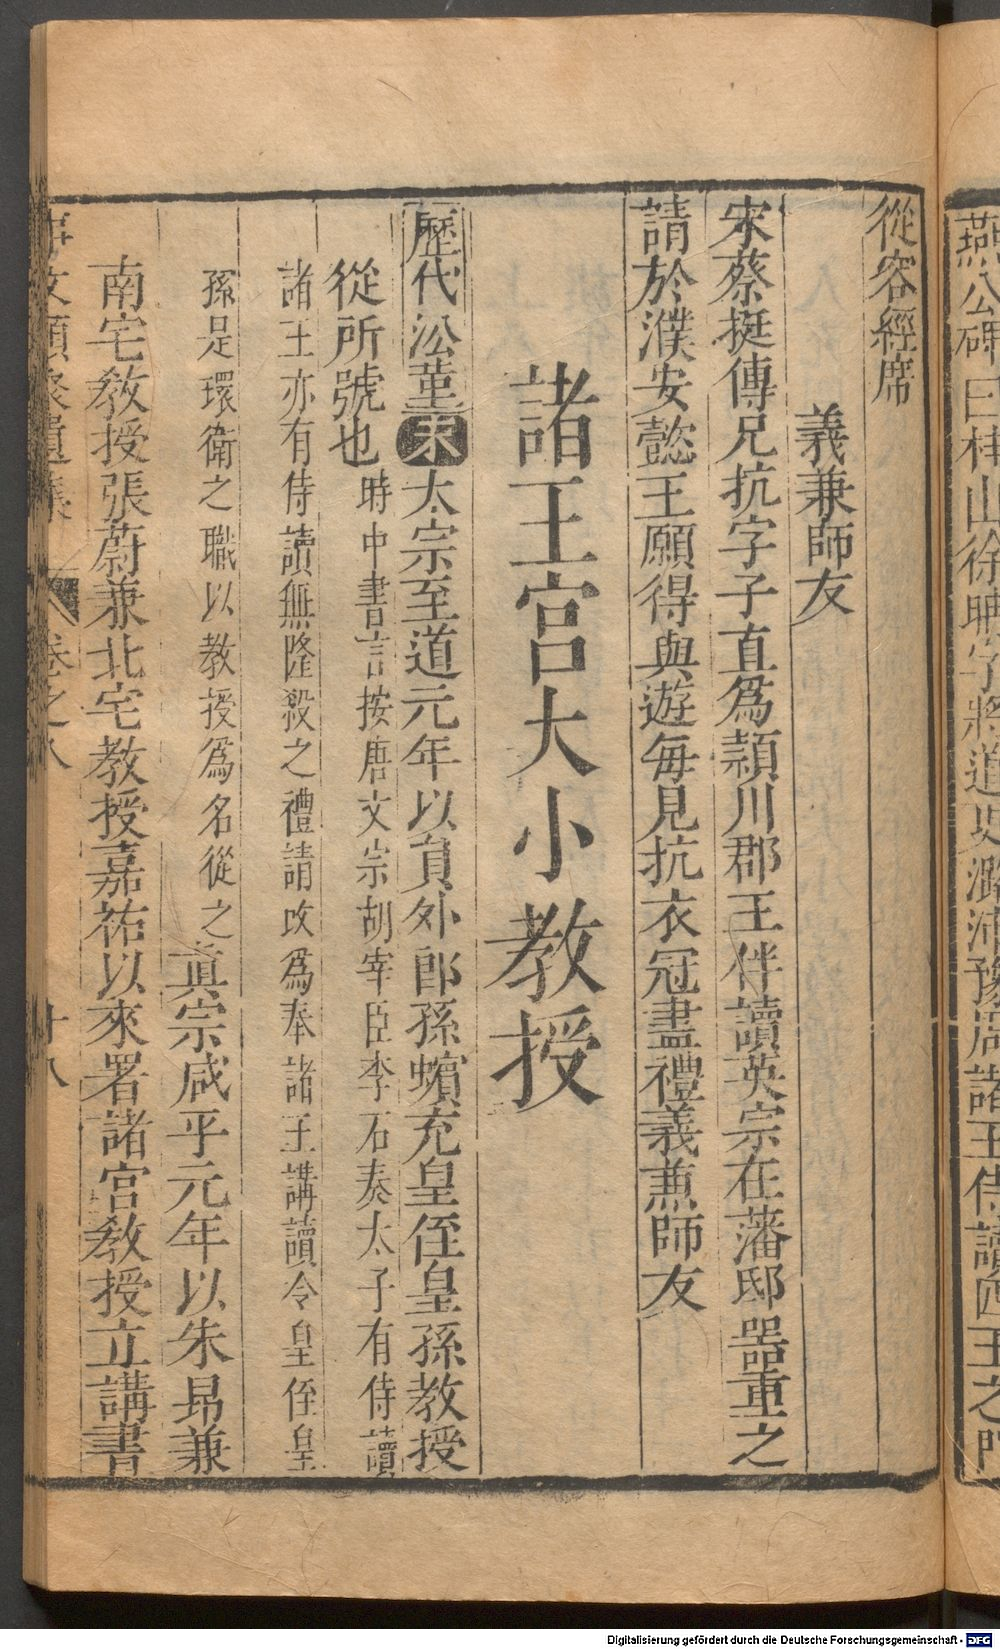 燕公碑曰桂山徐
字將道
諸王侍讀四王之門
從容經席
義兼師友
宋蔡挺傳兄抗字子直爲潁川郡王伴讀英宗在藩邸器重之
請於濮安懿王願得與遊每見抗衣冠盡禮義兼師友
諸王宮大小教授
歷代沿革宋太宗至道元年以員外郎孫蠙充皇侄皇孫教授
時中書言按唐文宗胡宰臣李石奏太子有侍讀
從所號也
諸王亦有侍讀無隆殺之禮請改爲奉諸王講讀令皇侄皇
孫是環衛之職以教授爲名從之眞宗咸平元年以朱昻兼
南宅教授張蔚兼北宅教授嘉祐以來署諸宮教授立講書
事文類聚遺集 卷之八 十八
Digitalisierung gefördert durch die Deutsche Forschungsgemeinschaft - DFG